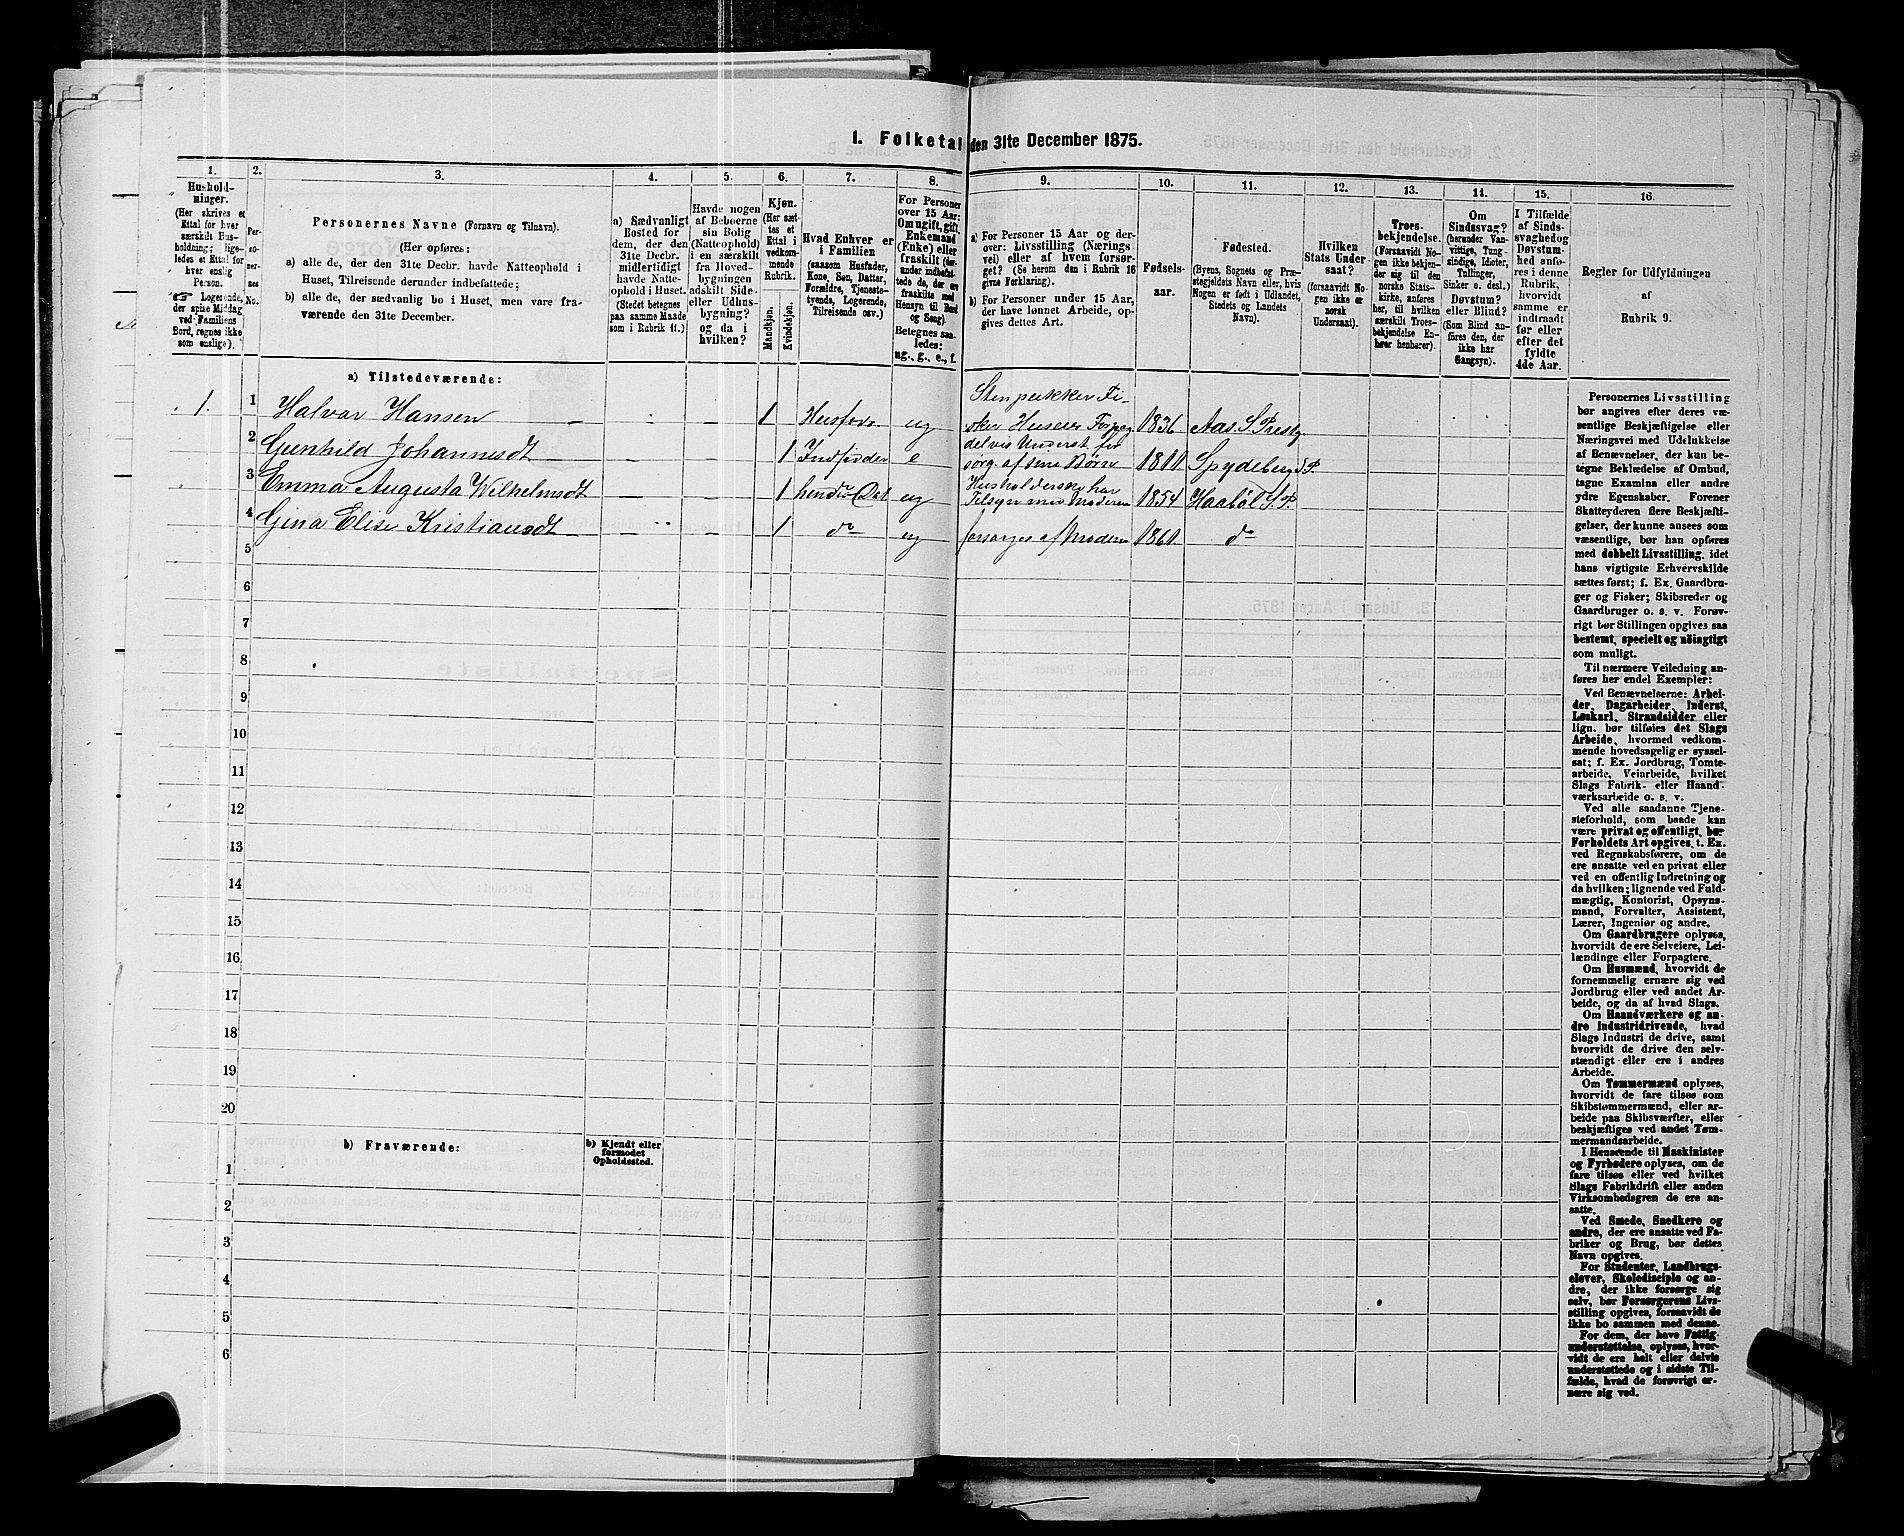 1. Folketal den 31te December 1875.
1.
Hushold-
ninger.
(Her skrives et
Ettal for hver
særskilt Hus-
holdning; lige-
ledes et Ettal for
hver enslig
Person.
Logerende,
der spise Middag
ved Familiens
Bord, regnes ikke
som enslige).
2.
Per-
so-
ner-
nes
No.
3.
Personernes Navne (Fornavn og Tilnavn).
(Her opføres:
a) alle de, der den 31te Decbr. havde Natteophold i
Huset, Tilreisende derunder indbefattede;
b) alle de, der sædvanlig bo i Huset, men vare fra-
værende den 31te December.
4.
a) Sædvanligt
Bosted for
dem, der den
31te Decbr.
midlertidigt
havde Natte-
ophold i Huset.
(Stedet betegnes
paa samme Maade
som i Rubrik 11.)
5.
Havde nogen
af Beboerne
sin Bolig
(Natteophold)
i en særskilt
fra Hoved-
bygningen
adskilt Side-
eller Udhus-
bygning?
og da i
hvilken?
6.
Kjøn.
(Her sæt-
tes et
Ettal i
vedkom-
mende
Rubrik.
Mandkjøn.
Kvindekjøn.
7.
Hvad Enhver er
i Familien
(saasom Husfader,
Kone, Søn, Datter,
Forældre, Tjeneste-
tyende, Logerende,
Tilreisende osv.)
8.
For Personer
over 15 Aar:
Om ugift, gift,
Enkemand
(Enke) eller
fraskilt (der-
under indbefat-
tede de, der ere
fraskilte med
Hensyn til Bord
og Seng).
Betegnes saa-
ledes:
ug., g., e., f.
9.
a) For Personer 15 Aar og der-
over: Livsstilling (Nærings
vei) eller af hvem forsør-
get? (Se herom den i Rubrik 16
givne Forklaring).
b) For Personer under 15 Aar,
der have lønnet Arbeide, op-
gives dettes Art.
10.
Fødsels-
aar.
11.
Fødested.
(Byens, Sognets og Præ-
stegjeldets Navn eller, hvis
Nogen er født i Udlandet,
Stedets og Landets
Navn).
12.
Hvilken
Stats Under-
saat?
(forsaavidt No-
gen ikke er
norsk
Undersaat).
13.
Troes-
bekjendelse.
(Forsaavidt No-
gen ikke bekjen-
der sig til den
norske Stats-
kirke, anføres
her, til hvilken
særskilt Troes-
bekjendelse En-
hver henhører).
14.
Om
Sindssvag?
(herunder Van-
vittige, Tung-
sindige, Idioter,
Tullinger,
Sinker o. desl.)
Døvstum?
eller Blind?
(Som Blind an-
føres den, der
ikke har
Gangsyn).
15.
I Tilfælde
af Sinds-
svaghed og
Døvstum-
hed anfø-
res i denne
Rubrik,
hvorvidt
samme er
indtraadt
før eller
efter det
fyldte
4de Aar.
16.
Regler for Udfyldningen
af
Rubrik 9.
a) Tilstedeværende:
1. 1 Halvar Hansen 1 Husfader ug Stenpikker Fi-
sker Huseier 1836 Aas. S. Prestg.
2 Gunhild Johannesdt 1 Indfødder e delvis Underst. for
sørg. af sine Børn 1811 Spydeberg S P
3 Emma Augusta Wilhelmsdt 1 hendes Dat ug Husholderske har
Tilsyn med Moderen 1854 Haabøl S. P.
4 Gina Elise Kristiansdt 1 do ug forsørges af Moderen 1861 do
5
6
7
8
9
10
11
12
13
14
15
16
17
18
19
20
b) Fraværende:
b) Kjendt eller
formodet
Opholdssted.
1
2
3
4
5
6
Personernes Livsstilling
bør angives efter deres væ-
sentlige Beskjæftigelse eller
Næringsvei med Udelukkelse
af Benævnelser, der kun be-
tegne Beklædelse af Ombud,
tagne Examina eller andre
ydre Egenskaber. Forener
Skatteyderen flere Beskjæfti-
gelser, der kunne ansees som
væsentlige, bør han opføres
med dobbelt Livsstilling, idet
hans vigtigste Erhvervskilde
sættes først; f. Ex. Gaardbru-
ger og Fisker; Skibsreder og
Gaardbruger o. s. v. Forøv-
rigt bør Stillingen opgives saa
bestemt, specielt og nöiagtigt
som muligt.
Til nærmere Veiledning an-
føres her endel Exempler:
Ved Benævnelserne: Arbei-
der, Dagarbeider, Inderst,
Løskarl, Strandsidder eller
lign. bør tilføies det Slags
Arbeide, hvormed vedkom-
mende hovedsagelig er syssel-
sat; f. Ex. Jordbrug, Tomte-
arbeide, Veiarbeide, hvilket
Slags Fabrik- eller Haand-
værksarbeide o. s. v.
Ved alle saadanne Tjene-
steforhold, som baade kan
være privat og offentligt, bør
Forholdets Art opgives, t. Ex.
ved Regnskabsførere, om de
ere ansatte ved en privat eller
ved en offentlig Indretning og
da hvilken; lignende ved Fuld-
mægtig, Kontorist, Opsyns-
mand, Forvalter, Assistent,
Lærer, Ingeniør og andre.
Om Gaardbrugere oplyses,
hvorvidt de ere Selveiere, Lei-
lændinge eller Forpagtere.
Om Husmænd, hvorvidt de
fornemmelig ernære sig ved
Jordbrug eller ved andet Ar-
beide, og da af hvad Slags.
Om Haandværkere og an-
dre Industridrivende, hvad
Slags Industri de drive, samt
hvorvidt de drive den selv-
stændigt eller ere i andres
Arbeide.
Om Tømmermænd oplyses,
hvorvidt de fare tilsøs som
Skibstømmermænd, eller ar-
beide paa Skibsværfter, eller
beskjæftiges ved andet Tøm-
mermandsarbeide.
I Henseende til Maskinister
og Fyrbødere oplyses, om de
fare tilsøs eller ved hvilket
Slags Fabrikdrift eller anden
Virksomhedsgren de ere an-
satte.
Ved Smede, Snedkere og
andre, der ere ansatte ved Fa-
briker og Brug, bør dettes
Navn opgives.
For Studenter, Landbrugs-
elever, Skoledisciple og an-
dre, der ikke forsørge sig
selv, bør Forsørgerens Livs-
stilling opgives, forsaavidt de
ikke bo sammen med denne.
For dem, der have Fattig-
understøttelse, oplyses, hvor-
vidt de ere helt eller delvis
understøttede og i sidste Til-
fælde, hvad de forøvrigt er-
nære sig ved.